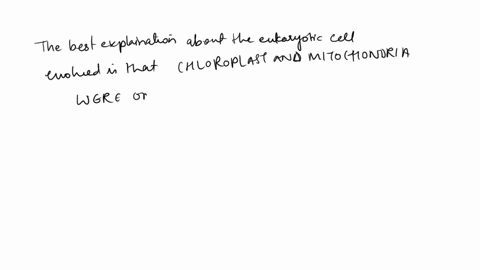 The best explaination about the eukaryotic cell
evolved is that CHLOROPLAST AND MITOCHONDRIA
WERE or